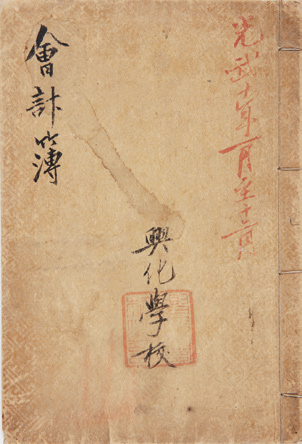 光武十年一月至十二月
會計簿
興化學校